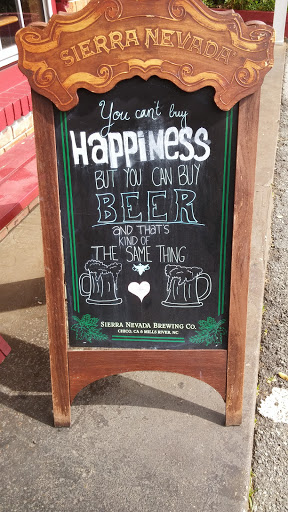 SIERRA NEVADA
You can't buy
HAPPINESS
BUT YOU CAN BUY
BEER
AND THAT'S
KIND OF
THE SAME THING
SIERRA NEVADA BREWING CO.
CHICO, CA & MILLS RIVER, NC